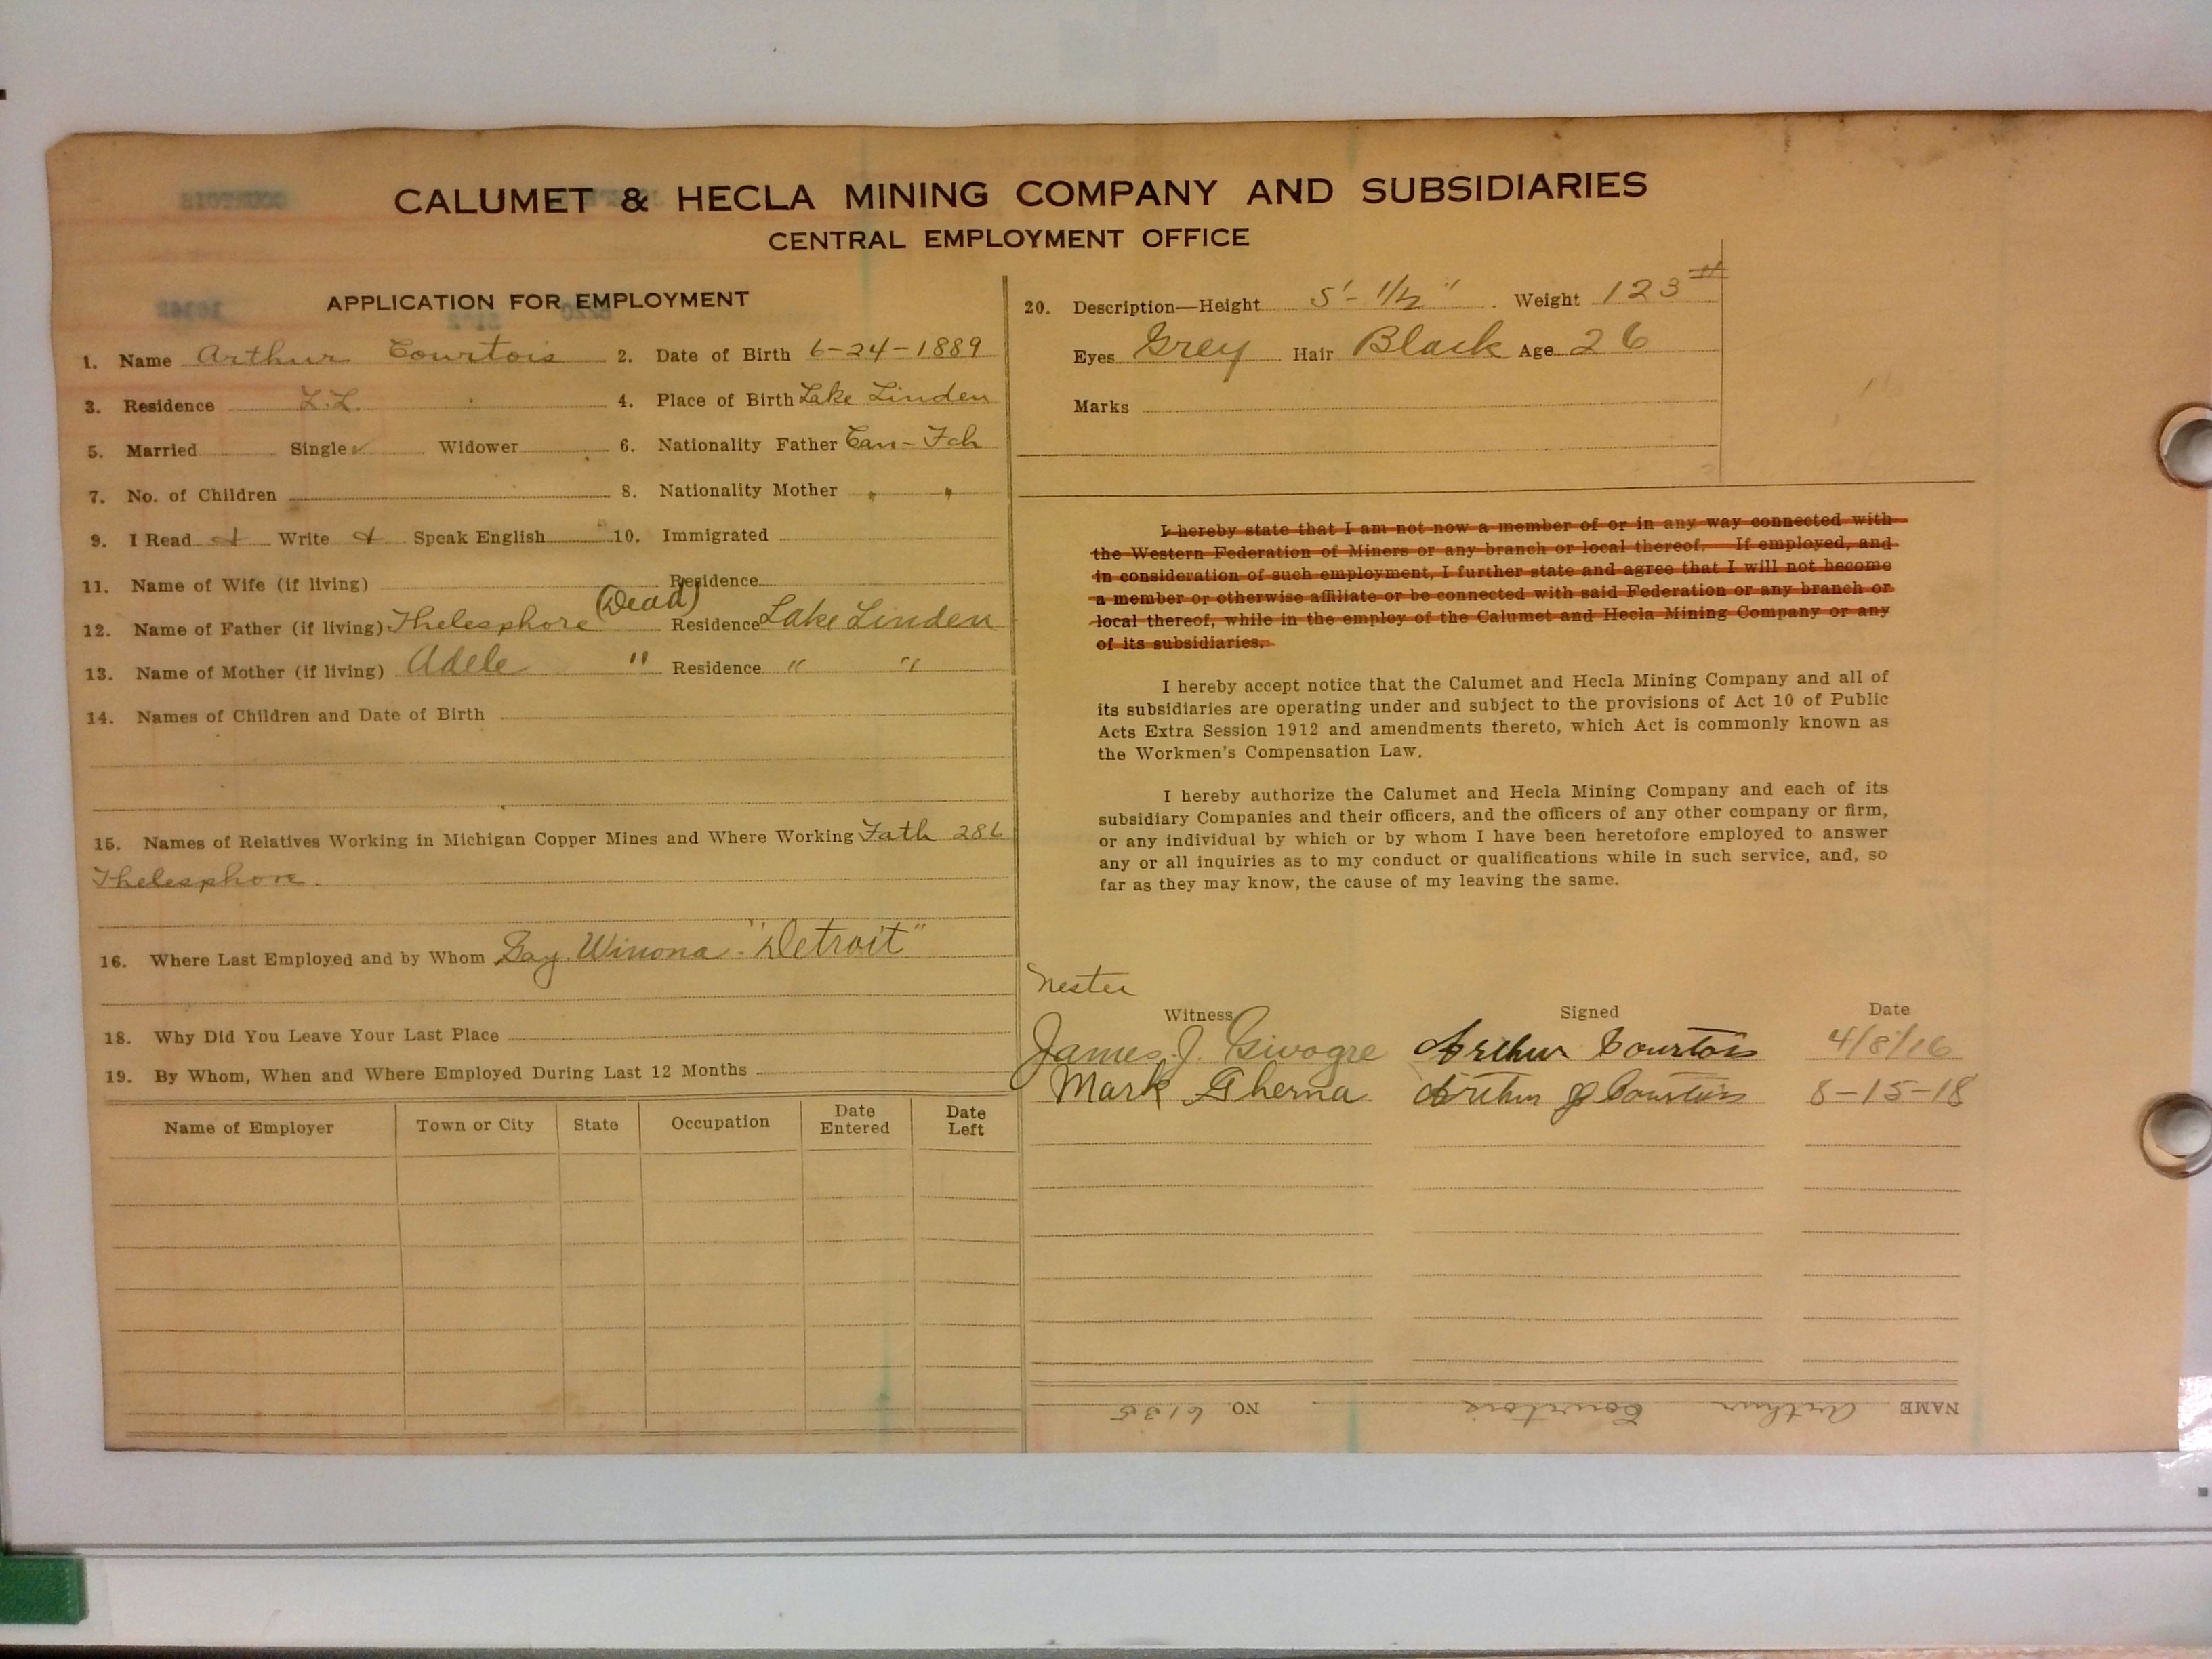 CALUMET & HECLA MINING COMPANY AND SUBSIDIARIES
CENTRAL EMPLOYMENT OFFICE
APPLICATION FOR EMPLOYMENT
1. Name Arthur Courtois 2. Date of Birth 6-24-1889
3. Residence L.L. 4. Place of Birth Lake Linden
5. Married Single ✓ Widower 6. Nationality Father Can-Fch
7. No. of Children 8. Nationality Mother " "
9. I Read Write Speak English 10. Immigrated
11. Name of Wife (if living) Residence
12. Name of Father (if living) Thelesphore (Dead) Residence Lake Linden
13. Name of Mother (if living) Adele " Residence " "
14. Names of Children and Date of Birth
15. Names of Relatives Working in Michigan Copper Mines and Where Working Fath 286
Thelesphore.
16. Where Last Employed and by Whom Gay. Winona - "Detroit"
18. Why Did You Leave Your Last Place
19. By Whom, When and Where Employed During Last 12 Months
Name of Employer Town or City State Occupation Date Entered Date Left
20. Description—Height 5'-1½" Weight 123#
Eyes Grey Hair Black Age 26
Marks
I hereby state that I am not now a member of or in any way connected with
the Western Federation of Miners or any branch or local thereof. If employed, and
in consideration of such employment, I further state and agree that I will not become
a member or otherwise affiliate or be connected with said Federation or any branch or
local thereof, while in the employ of the Calumet and Hecla Mining Company or any
of its subsidiaries.
I hereby accept notice that the Calumet and Hecla Mining Company and all of
its subsidiaries are operating under and subject to the provisions of Act 10 of Public
Acts Extra Session 1912 and amendments thereto, which Act is commonly known as
the Workmen's Compensation Law.
I hereby authorize the Calumet and Hecla Mining Company and each of its
subsidiary Companies and their officers, and the officers of any other company or firm,
or any individual by which or by whom I have been heretofore employed to answer
any or all inquiries as to my conduct or qualifications while in such service, and, so
far as they may know, the cause of my leaving the same.
Nester
Witness Signed Date
James J. Givogre Arthur Courtois 4/8/16
Mark Gherna Arthur J Courtois 8-15-18
NAME Arthur Courtois NO. 6135